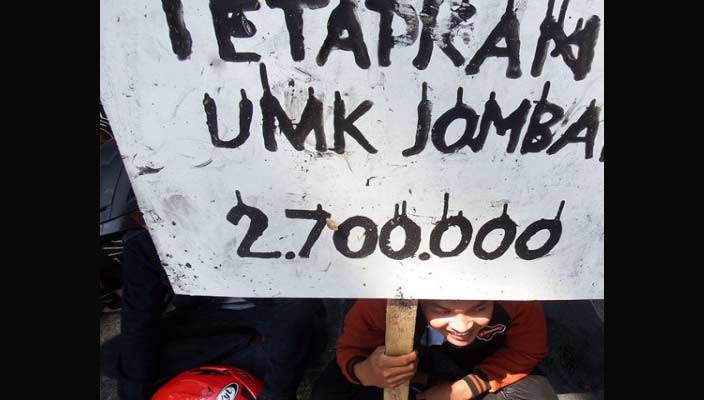 TETAPKAN
UMK JOMBA
2.700.000